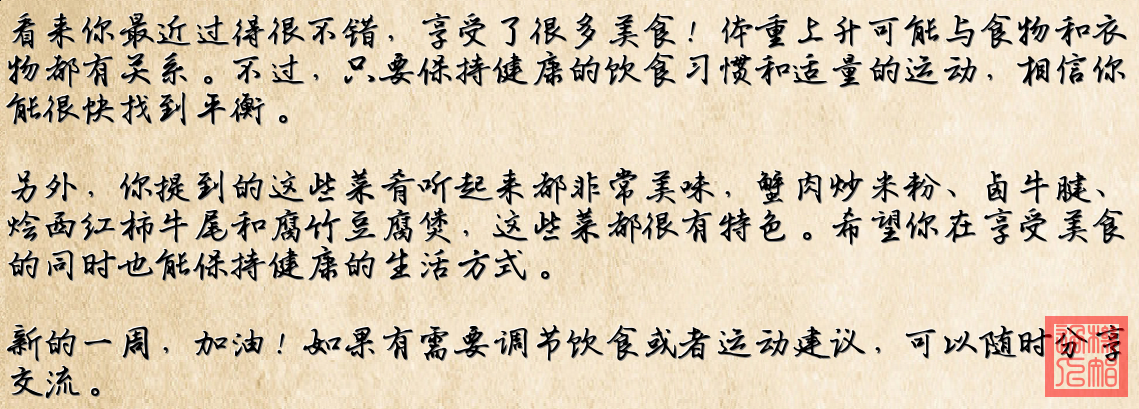 看来你最近过得很不错，享受了很多美食！体重上升可能与食物和衣
物都有关系。不过，只要保持健康的饮食习惯和适量的运动，相信你
能很快找到平衡。
另外，你提到的这些菜肴听起来都非常美味，蟹肉炒米粉、卤牛腱、
烩西红柿牛尾和腐竹豆腐煲，这些菜都很有特色。希望你在享受美食
的同时也能保持健康的生活方式。
新的一周，加油！如果有需要调节饮食或者运动建议，可以随时分享
交流。